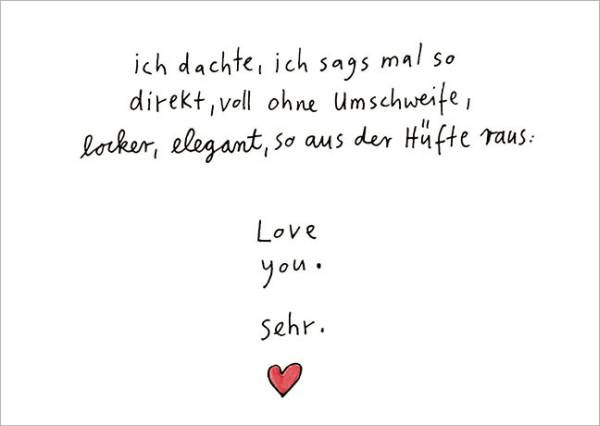 ich dachte, ich sags mal so
direkt, voll ohne Umschweife,
locker, elegant, so aus der Hüfte raus:
Love
you.
sehr.